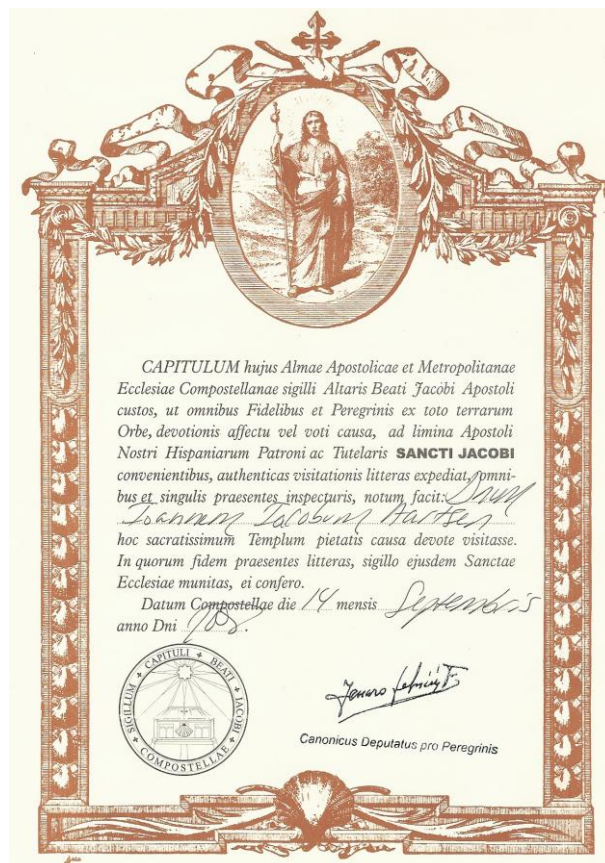 CAPITULUM hujus Almae Apostolicae et Metropolitanae
Ecclesiae Compostellanae sigilli Altaris Beati Jacobi Apostoli
custos, ut omnibus Fidelibus et Peregrinis ex toto terrarum
Orbe, devotionis affectu vel voti causa, ad limina Apostoli
Nostri Hispaniarum Patroni ac Tutelaris SANCTI JACOBI
convenientibus, authenticas visitationis litteras expediat, omni-
bus et singulis praesentes inspecturis, notum facit: Dnum
Ioannem Iacobum Aartsen
hoc sacratissimum Templum pietatis causa devote visitasse.
In quorum fidem praesentes litteras, sigillo ejusdem Sanctae
Ecclesiae munitas, ei confero.
Datum Compostellae die 14 mensis Septembris
anno Dni
SIGILLUM CAPITULI BEATI JACOBI COMPOSTELLAE
Canonicus Deputatus pro Peregrinis